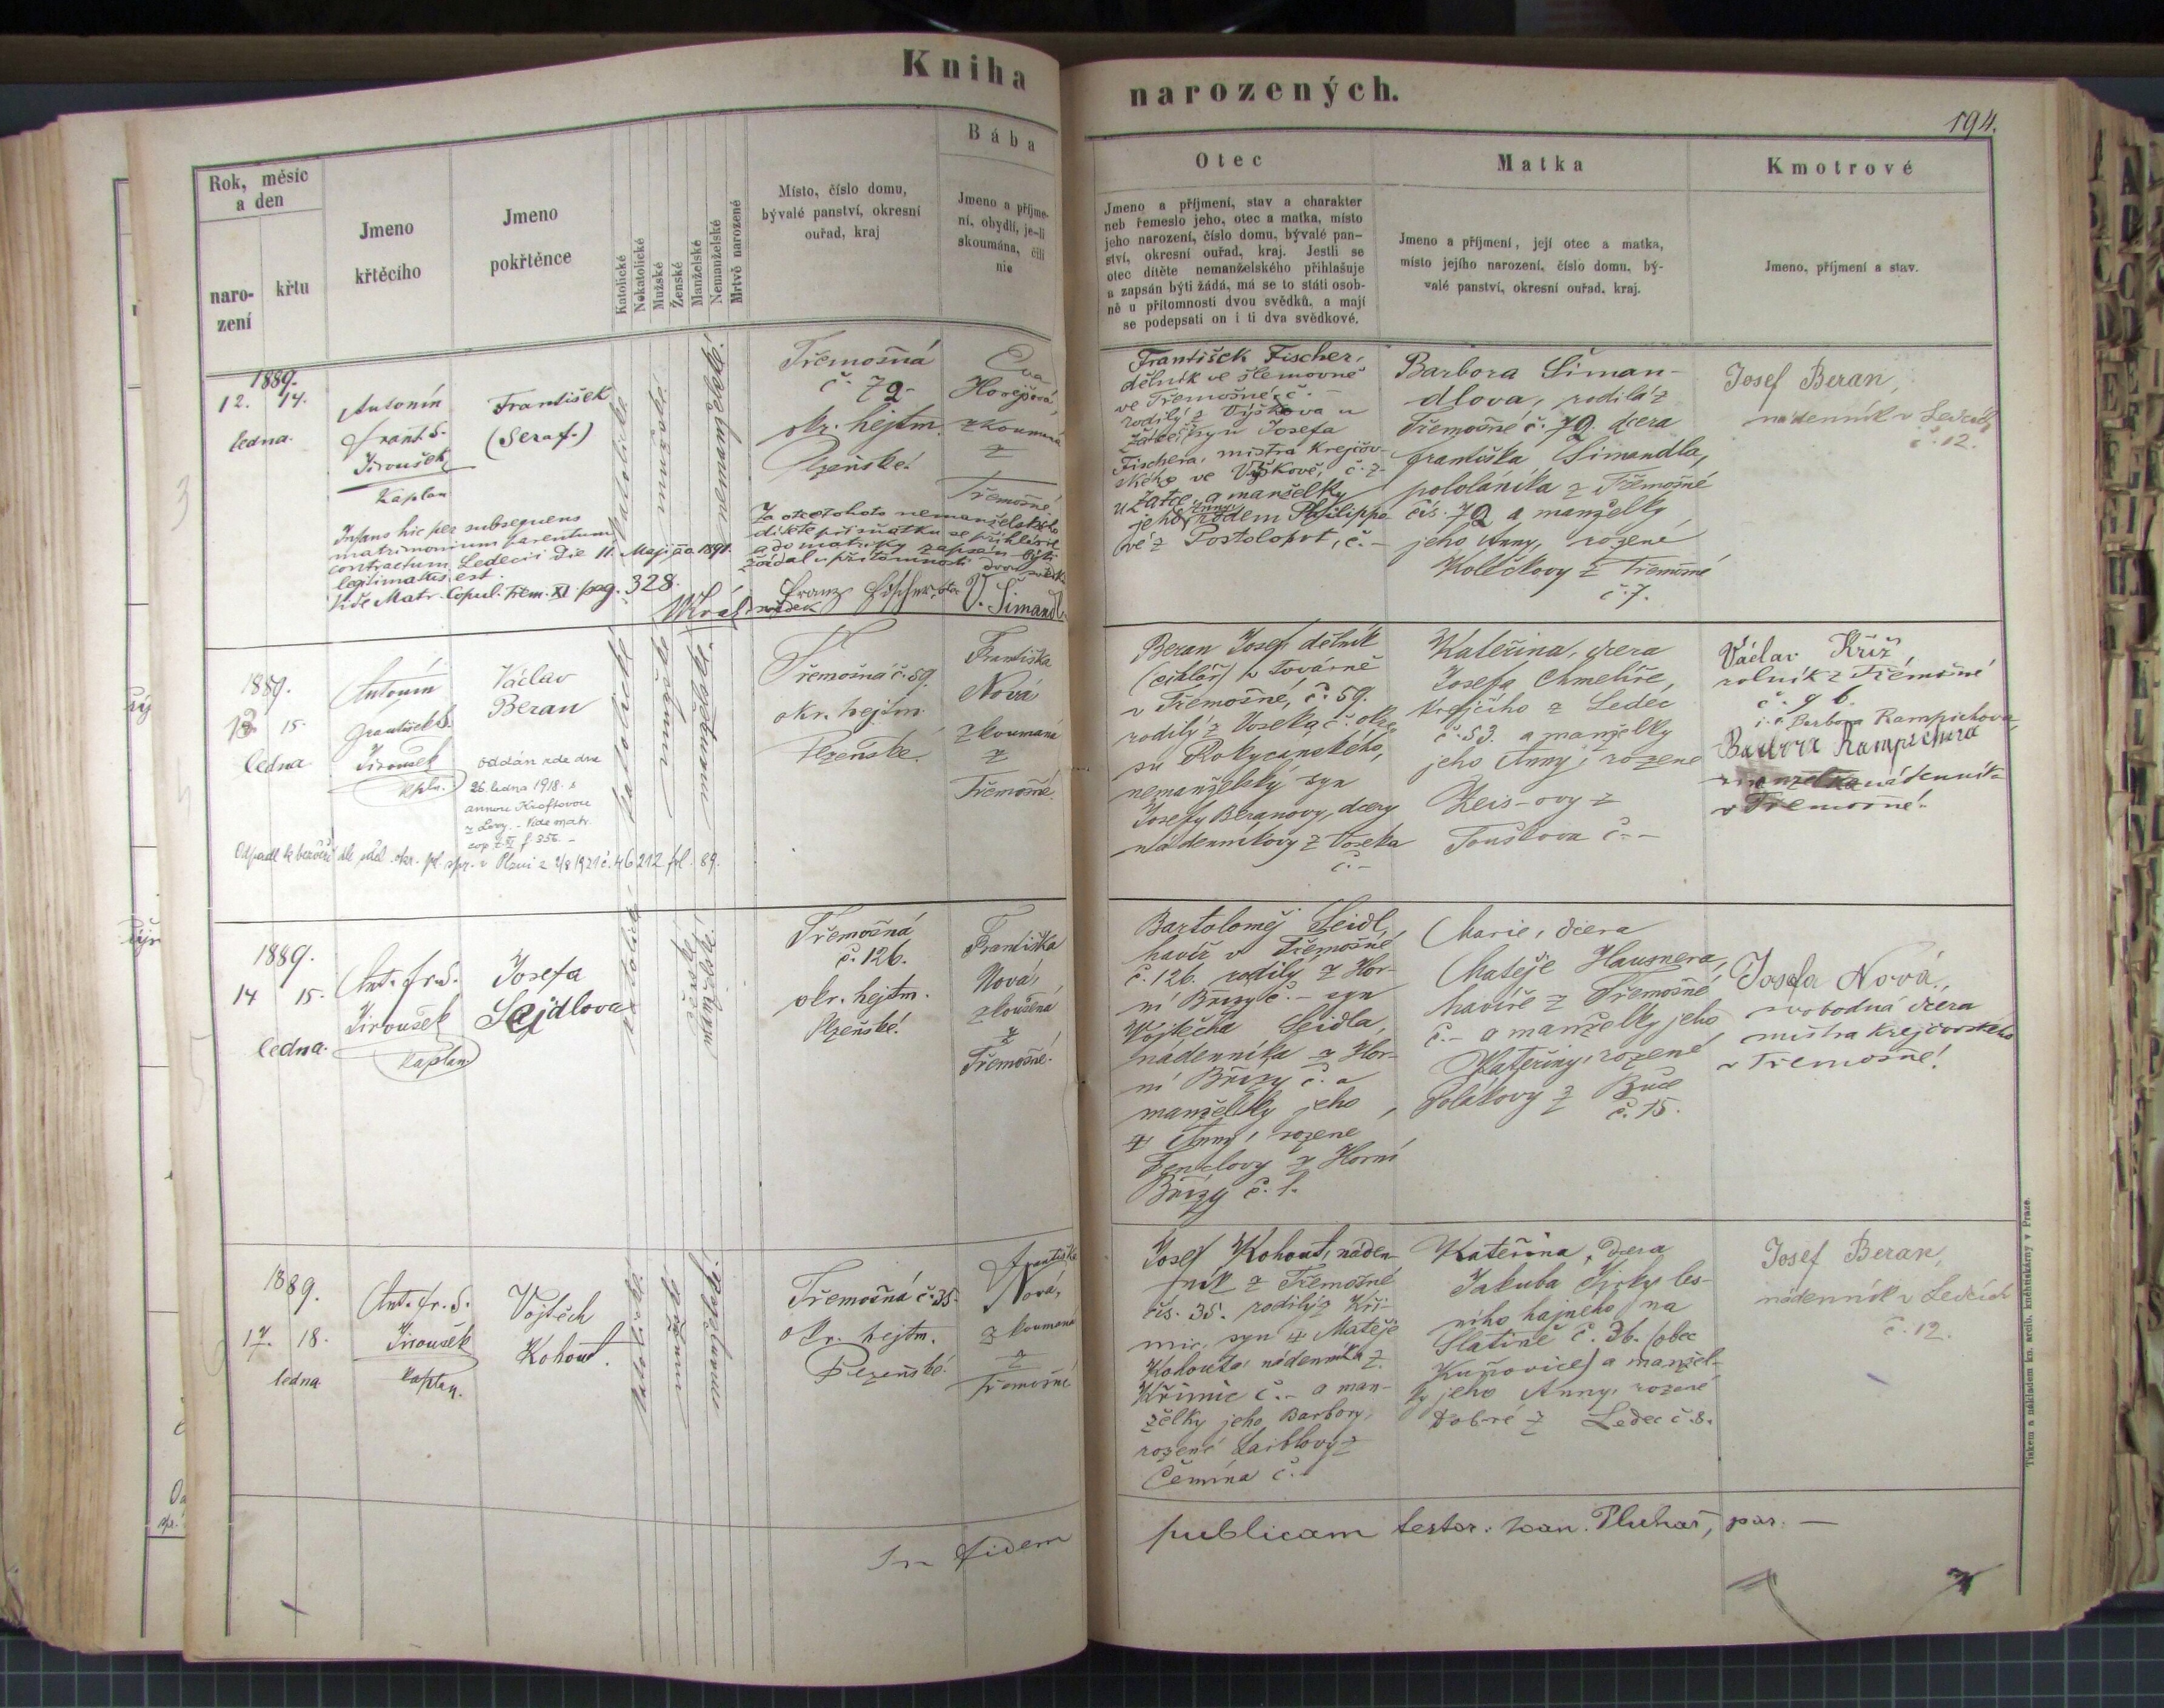 Kniha
narozených.
194.
Rok, měsíc
a den
naro-
zení
křtu
Jmeno
křtěcího
Jmeno
pokřtěnce
Katolické
Nekatolické
Mužské
Ženské
Manželské
Nemanželské
Mrtvě narozené
Místo, číslo domu,
bývalé panství, okresní
ouřad, kraj
Bába
Jmeno a příjme-
ní, obydlí, je-li
skoumána, čili
nic
Otec
Jmeno a příjmení, stav a charakter
neb řemeslo jeho, otec a matka, místo
jeho narození, číslo domu, bývalé pan-
ství, okresní ouřad, kraj. Jestli se
otec dítěte nemanželského přihlašuje
a zapsán býti žádá, má se to státi osob-
ně u přítomnosti dvou svědků, a mají
se podepsati on i ti dva svědkové.
Matka
Jmeno a příjmení, její otec a matka,
místo jejího narození, číslo domu, bý-
valé panství, okresní ouřad, kraj.
Kmotrové
Jmeno, příjmení a stav.
1889.
12. 14.
ledna.
Antonín
Frant. S.
Jiroušek
Kaplan
František
(Seraf.)
katolické
mužské
nemanželské.
Třemošná
č. 79.
okr. hejtm.
Plzeňské.
Eva
Hořejšová,
zkoumaná
z
Třemošné.
Infans hic per subsequens
matrimonium parentum
contractum Ledecii die 11. Maji ao. 1891.
legitimatus est.
Vide Matr. Copul. Třem. XI. pag. 328.
Za otce tohoto nemanželského
dítěte při sňatku se přihlásil
a do matriky zapsán býti
žádal u přítomnosti dvou svědků
Franz Fischer, otec
V. Šimandl.
Král svědek
František Fischer,
dělník ve šlemovně
ve Třemošné č. –
rodilý z Výškova u
Žatce, syn Josefa
Fischera, mistra krejčov-
ského ve Výškově, č. 7.
u Žatce, a manželky
jeho Anny, rodem Philippo-
vé z Postoloprt, č. –
Barbora Šiman-
dlova, rodilá z
Třemošné č. 79. dcera
Františka Šimandla,
pololáníka z Třemošné
čís. 79 a manželky
jeho Anny, rozené
Kolečkovy z Třemošné
č. 7.
Josef Beran,
nádenník v Ledcích
č. 12.
1889.
13. 15.
ledna
Antonín
František S.
Jiroušek
kpln.
Václav
Beran
oddán zde dne
26. ledna 1918. s
Annou Kroftovou
z Lovy. – Vide matr.
cop. t. XI f 356. –
Odpadl k bezvěří dle sděl. okr. pol. spr. v Plzni z 2/8 1921 č. 46212 fol. 89.
katolické
mužské
manželské.
Třemošná č. 59.
okr. hejtm.
Plzeňské.
Františka
Nová
zkoumaná
z
Třemošné.
Beran Josef dělník
(cihlář) k továrně
v Třemošné, č. 59.
rodilý z Voseka č. okre-
su Rokycanského,
nemanželský syn
Josefy Beranovy, dcery
nádenníkovy z Voseka
č. –
Kateřina, dcera
Josefa Chmelíře,
krejčího z Ledec
č. 53. a manželky
jeho Anny, rozené
Zeis-ovy z
Touškova č. –
Václav Kříž,
rolník z Třemošné
č. 9 b.
i. č. Barbora Rampichova
Barbora Rampichová
manželka nádenníka
v Třemošné.
1889.
14 15.
ledna.
Ant. Fr. S.
Jiroušek
kaplan
Josefa
Sejdlova
katolické
ženské
manželské.
Třemošná
č. 126.
okr. hejtm.
Plzeňské.
Františka
Nová,
zkoušená
z
Třemošné.
Bartoloměj Seidl,
havíř v Třemošné
č. 126. rodilý z Hor-
ní Břízy č. – syn
Vojtěcha Seidla,
nádenníka z Hor-
ní Břízy č. a
manželky jeho
† Anny, rozené
Fenclovy z Horní
Břízy č. 1.
Marie, dcera
Matěje Hausnera,
havíře z Třemošné
č. – a manželky jeho
Kateřiny, rozené
Polákovy z Buce
č. 15.
Josefa Nová,
svobodná dcera
mistra krejčovského
v Třemošné.
1889.
17. 18.
ledna
Ant. Fr. S.
Jiroušek
kaplan.
Vojtěch
Kohout.
katolické
mužské
manželské.
Třemošná č. 35.
okr. hejtm.
Plzeňské.
Františka
Nová,
zkoumaná
z
Třemošné
Josef Kohout, náden-
ník z Třemošné
čís. 35. rodilý z Kři-
mic, syn † Matěje
Kohouta nádenníka z
Křimic č. – a man-
želky jeho Barbory,
rozené Laiblovy z
Čemína č. 1
Kateřina, dcera
Jakuba Jirky les-
ního hajného na
Slatině č. 36. (obec
Kunovice) a manžel-
ky jeho Anny, rozené
Dobré z Ledec č. 8.
Josef Beran,
nádenník v Ledcích
č. 12.
In fidem
publicam testor: Joan. Pluhař, par. –
Tiskem a nákladem kn. arcib. knihtiskárny v Praze.